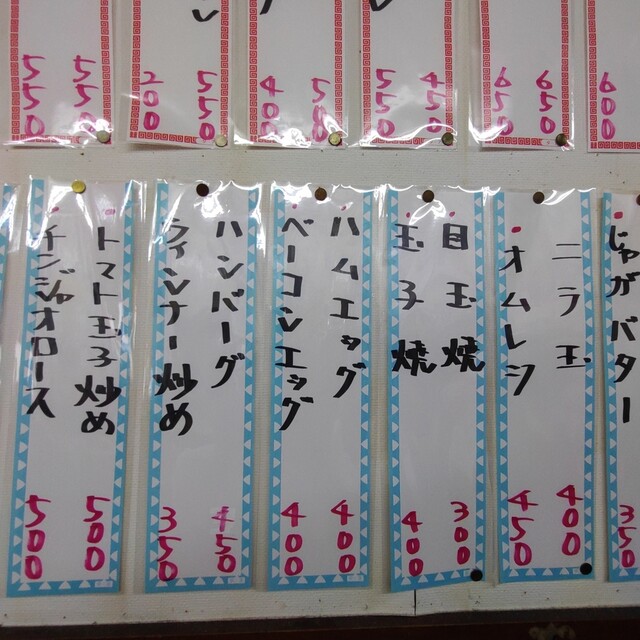 600
650
650
450
550
400
550
200
550
550
じゃがバター
350
ニラ玉
400
オムレツ
450
目玉焼
300
玉子焼
400
ハムエッグ
400
ベーコンエッグ
400
ハンバーグ
450
ウィンナー炒め
350
トマト玉子炒め
500
チンジャオロース
500